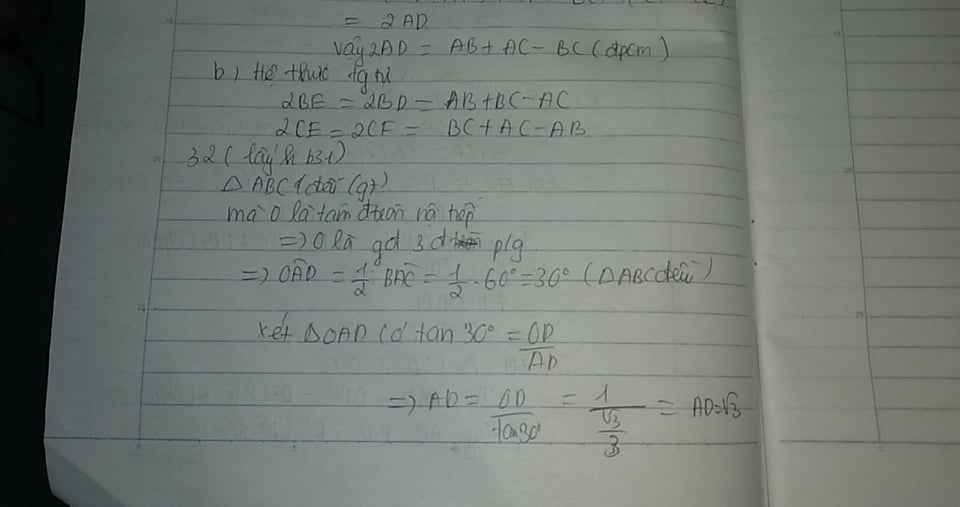 = 2AD
Vậy 2AD = AB + AC - BC (đpcm)
b) Hệ thức tg tự
2BE = 2BD = AB + BC - AC
2CE = 2CF = BC + AC - AB
32 (lấy h b31)
△ABC đều (gt)
mà O là tâm đtròn nội tiếp
=> O là gđ 3 đ p/g
=> OÂD = 1/2 BÂC = 1/2 . 60° = 30° (△ABC đều)
Xét △OAD có tan 30° = OD/AD
=> AD = OD/tan30° = 1/(√3/3) = AD = √3